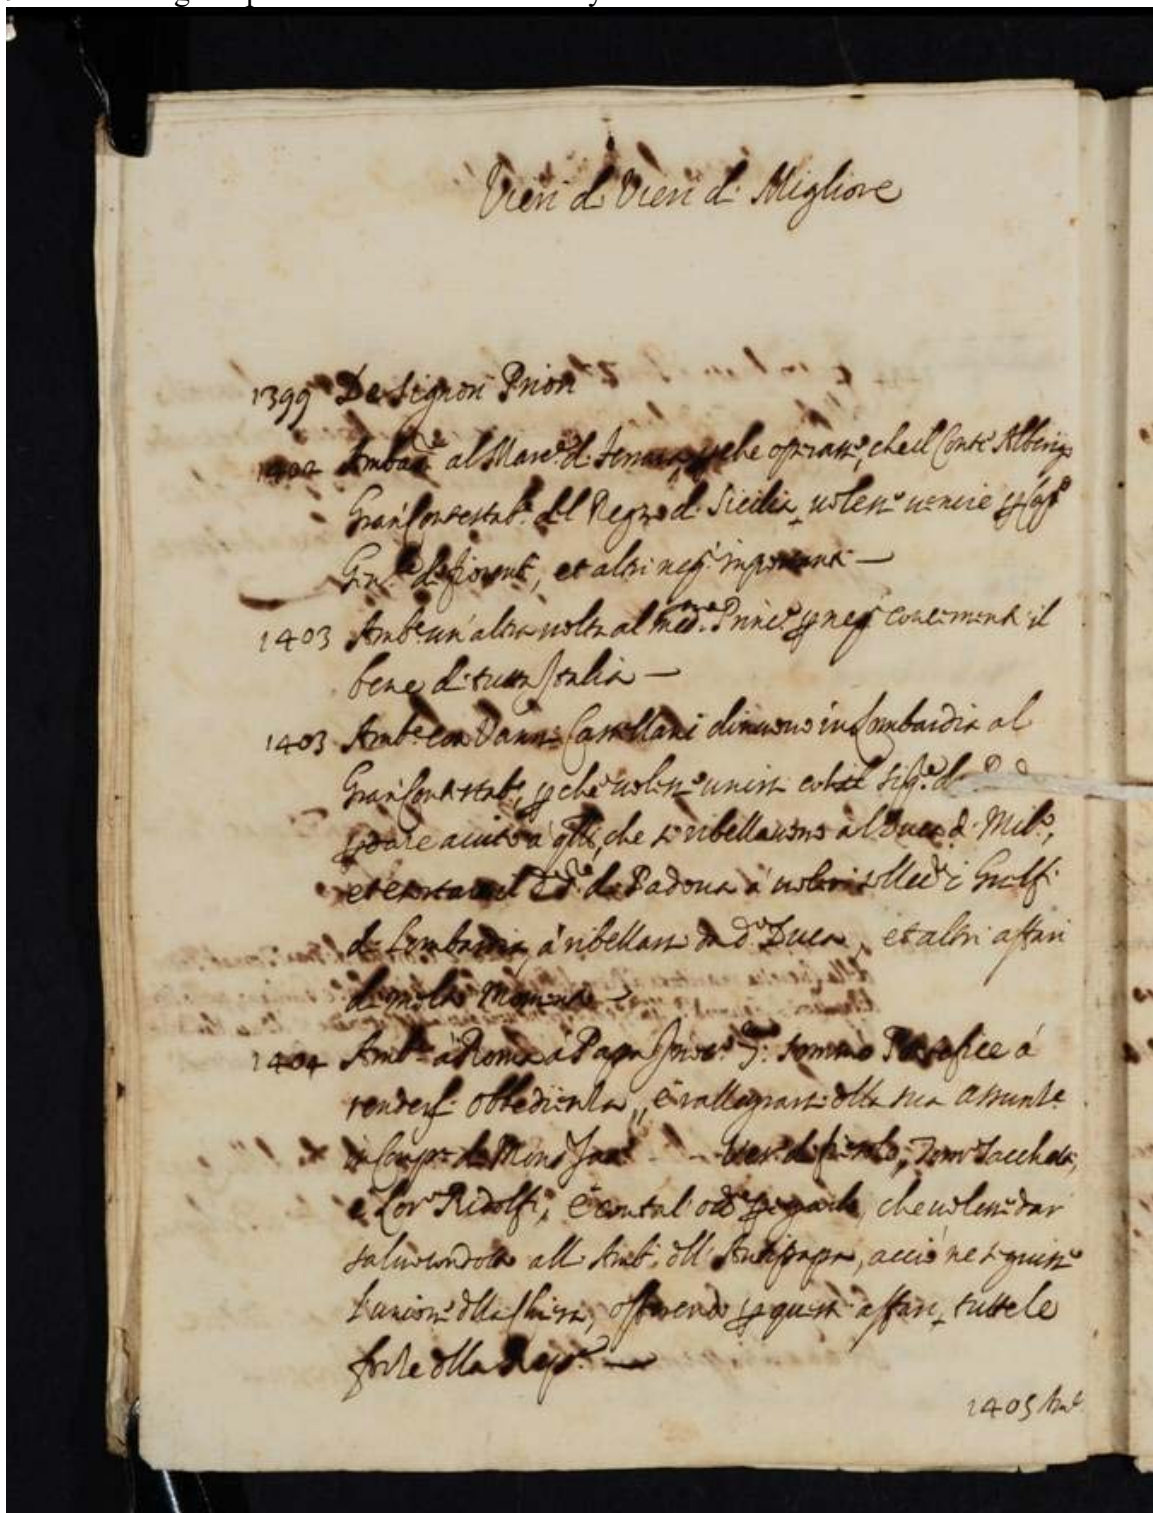 Vieri di Vieri di Migliore
1399 De Signori Priori
1402 Amb.re al Marc.e di Ferrara, che operasse, che il Conte Alberigo
Gran Contestab.e del Regno di Sicilia, volesse venire
Gn.le de fiorent.i, et altri neg.i importanti —
1403 Amb.e un'altra volta al med.mo Princ.e neg.i concernenti il
bene di tutta Italia —
1403 Amb.e con Vanni Castellani di nuovo in Lombardia al
Gran Contestab.e, che volesse unirsi col Sig.re di
dare aiuto a q̃lli, che si ribellavono al Duca di Mil.o,
et esortare il d.o di Padova à voler sollev.e i Guelfi
di Lombardia, à ribellarsi da d.o Duca, et altri affari
di molto Momento —
1404 Amb.e à Roma à Papa Innoc.o 7.o sommo Pontefice à
rendergli obbedienza, è rallegrarsi dlla sua assunt.e
in Comp.a di Mons. Jac.o - - Vesc. di fiesole, Tom.o Sacchetti,
è Lor.o Ridolfi, è con tal' occ.e pregarlo, che volesse dar
salvocondotto all Amb.i dll' Antipapa, acciò ne seguisse
l'unione dlla Chiesa, offerendo questi affari, tutte le
forze dlla Rep.a —
1405 Amb.e